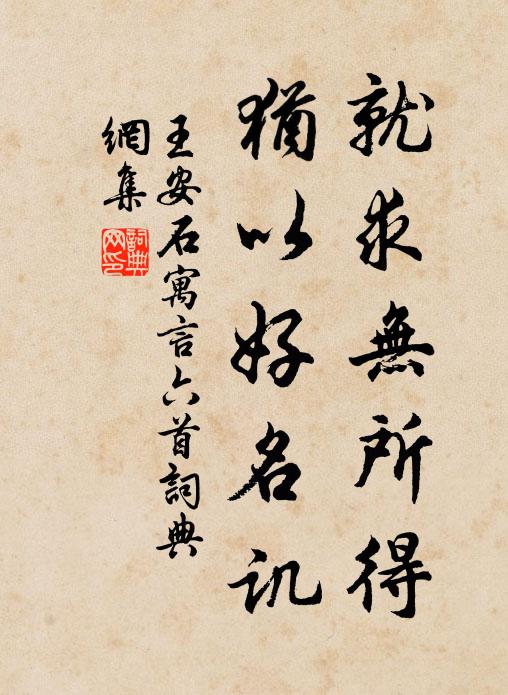 就求無所得
猶以好名讥
王安石寓言六首詞典
網集
詞典網印